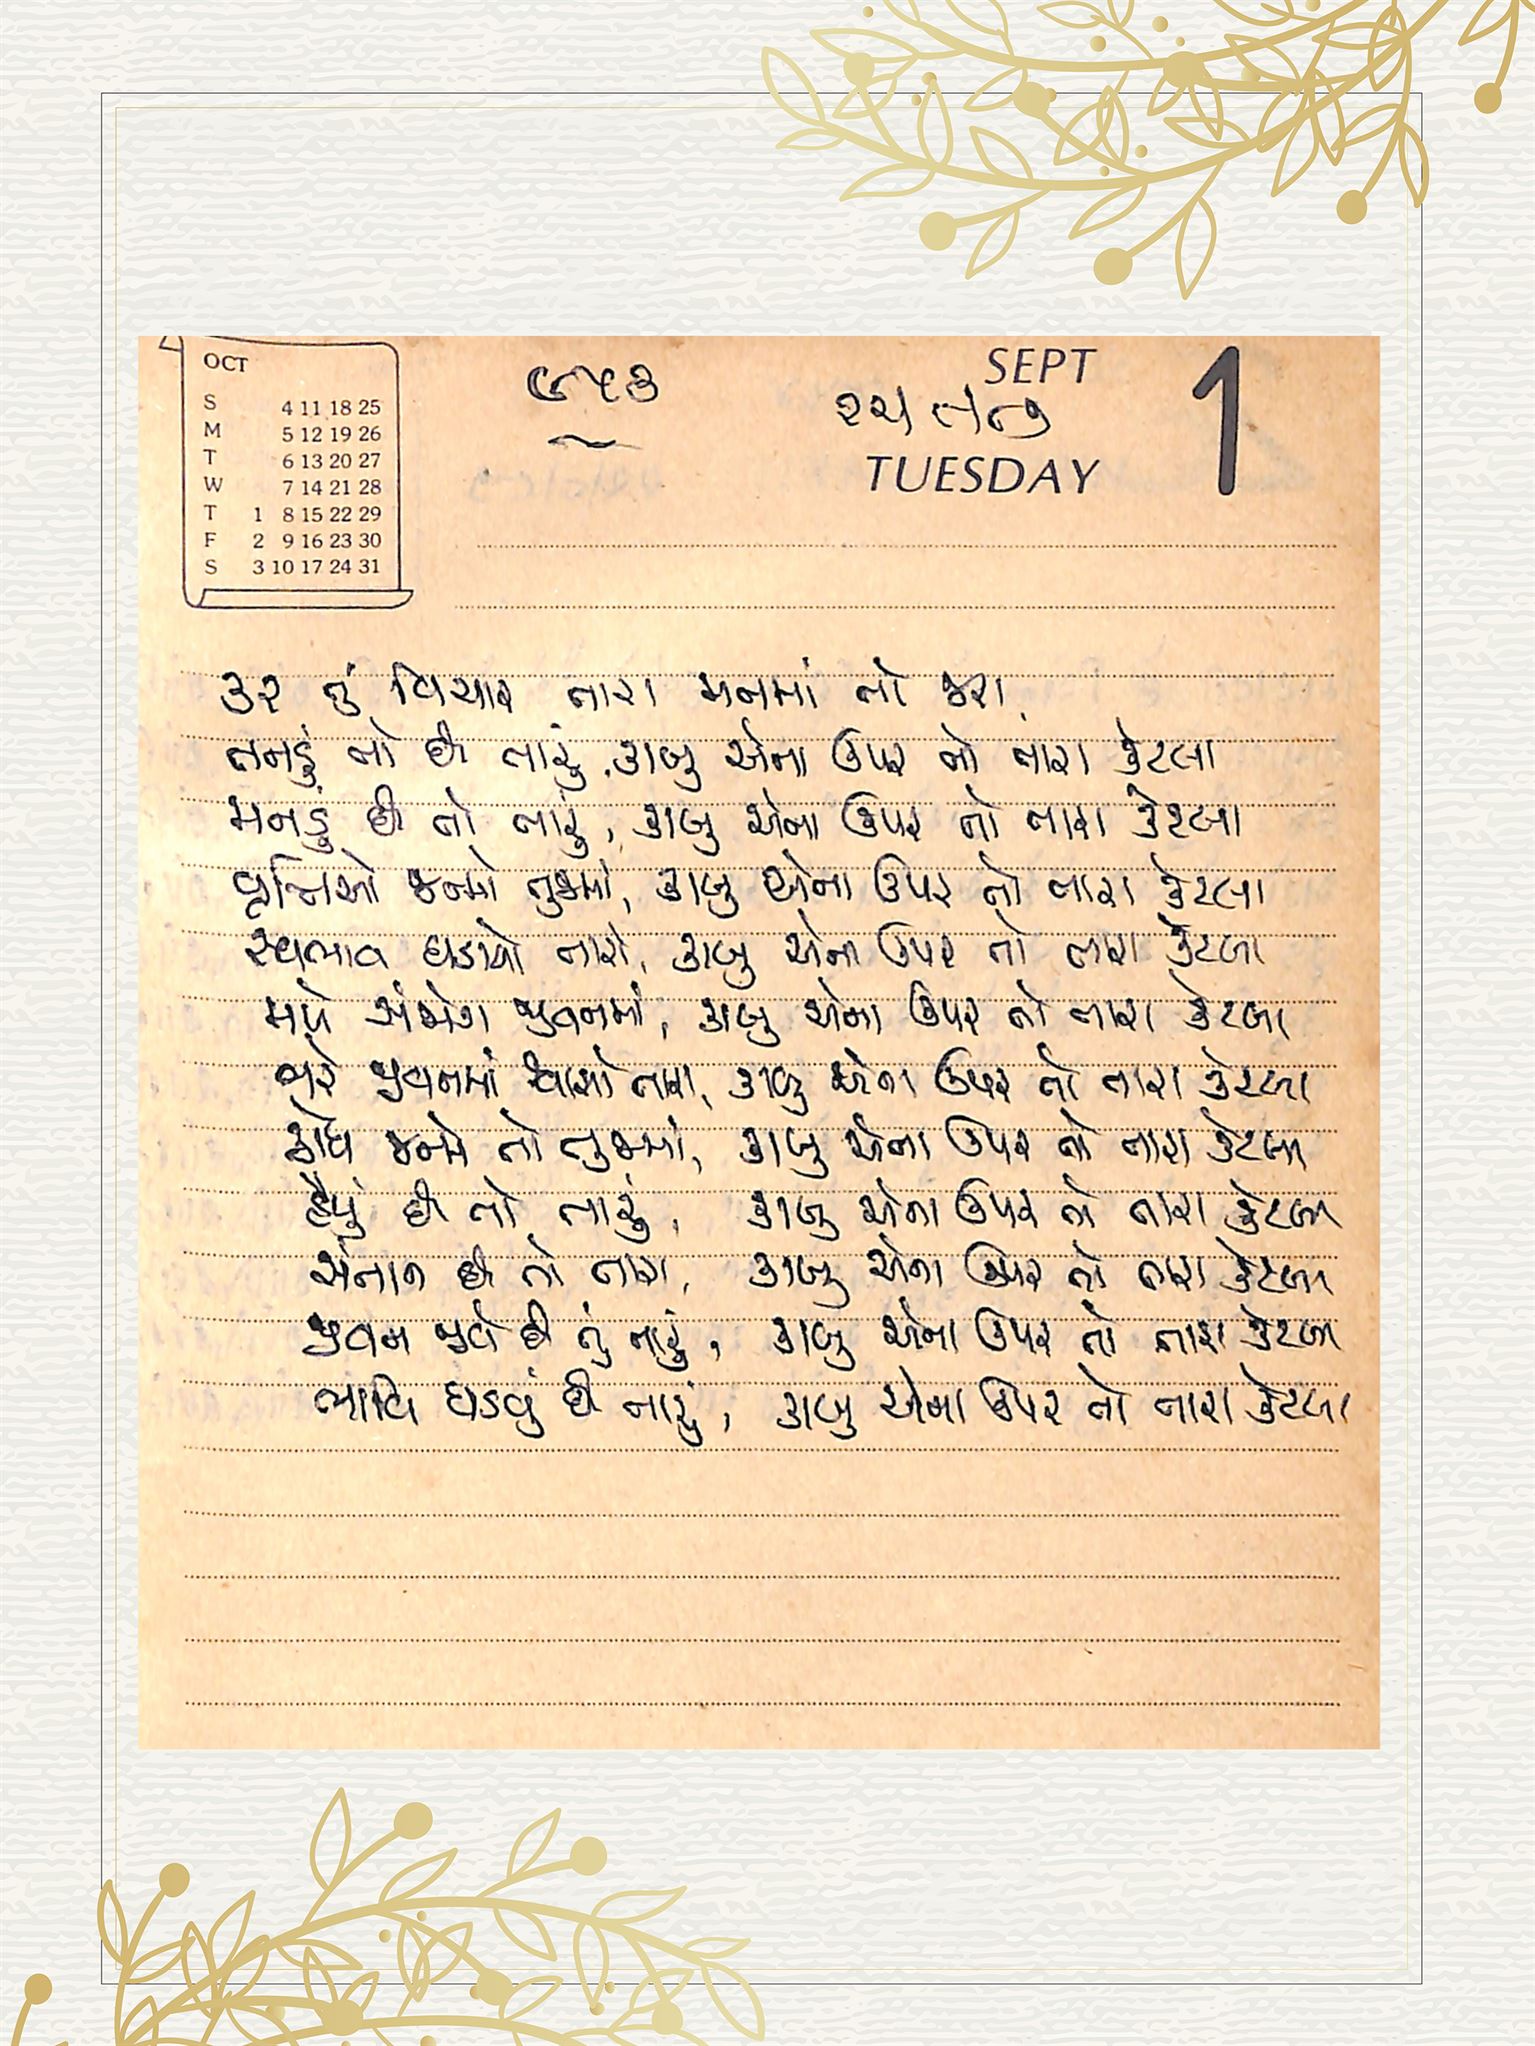 OCT
S 4 11 18 25
M 5 12 19 26
T 6 13 20 27
W 7 14 21 28
T 1 8 15 22 29
F 2 9 16 23 30
S 3 10 17 24 31
SEPT
TUESDAY
1
કર તું વિચાર તારા મનમાં તો જરા
તનડું તો છે તારું, કાબુ એના ઉપર તો તારા કેટલા
મનડું છે તો તારું, કાબુ એના ઉપર તો તારા કેટલા
વૃત્તિઓ જન્મે તુજમાં, કાબુ એના ઉપર તો તારા કેટલા
સ્વભાવ ઘડાયો તારો, કાબુ એના ઉપર તો તારા કેટલા
મળે સંજોગ જીવનમાં, કાબુ એના ઉપર તો તારા કેટલા
ભરે જીવનમાં શ્વાસો તારા, કાબુ એના ઉપર તો તારા કેટલા
ક્રોધ જન્મે તો તુજમાં, કાબુ એના ઉપર તો તારા કેટલા
હૈયું છે તો તારું, કાબુ એના ઉપર તો તારા કેટલા
સંતાન છે તો તારા, કાબુ એના ઉપર તો તારા કેટલા
જીવન જીવે છે તું તારું, કાબુ એના ઉપર તો તારા કેટલા
ભાવિ ઘડવું છે તારું, કાબુ એના ઉપર તો તારા કેટલા